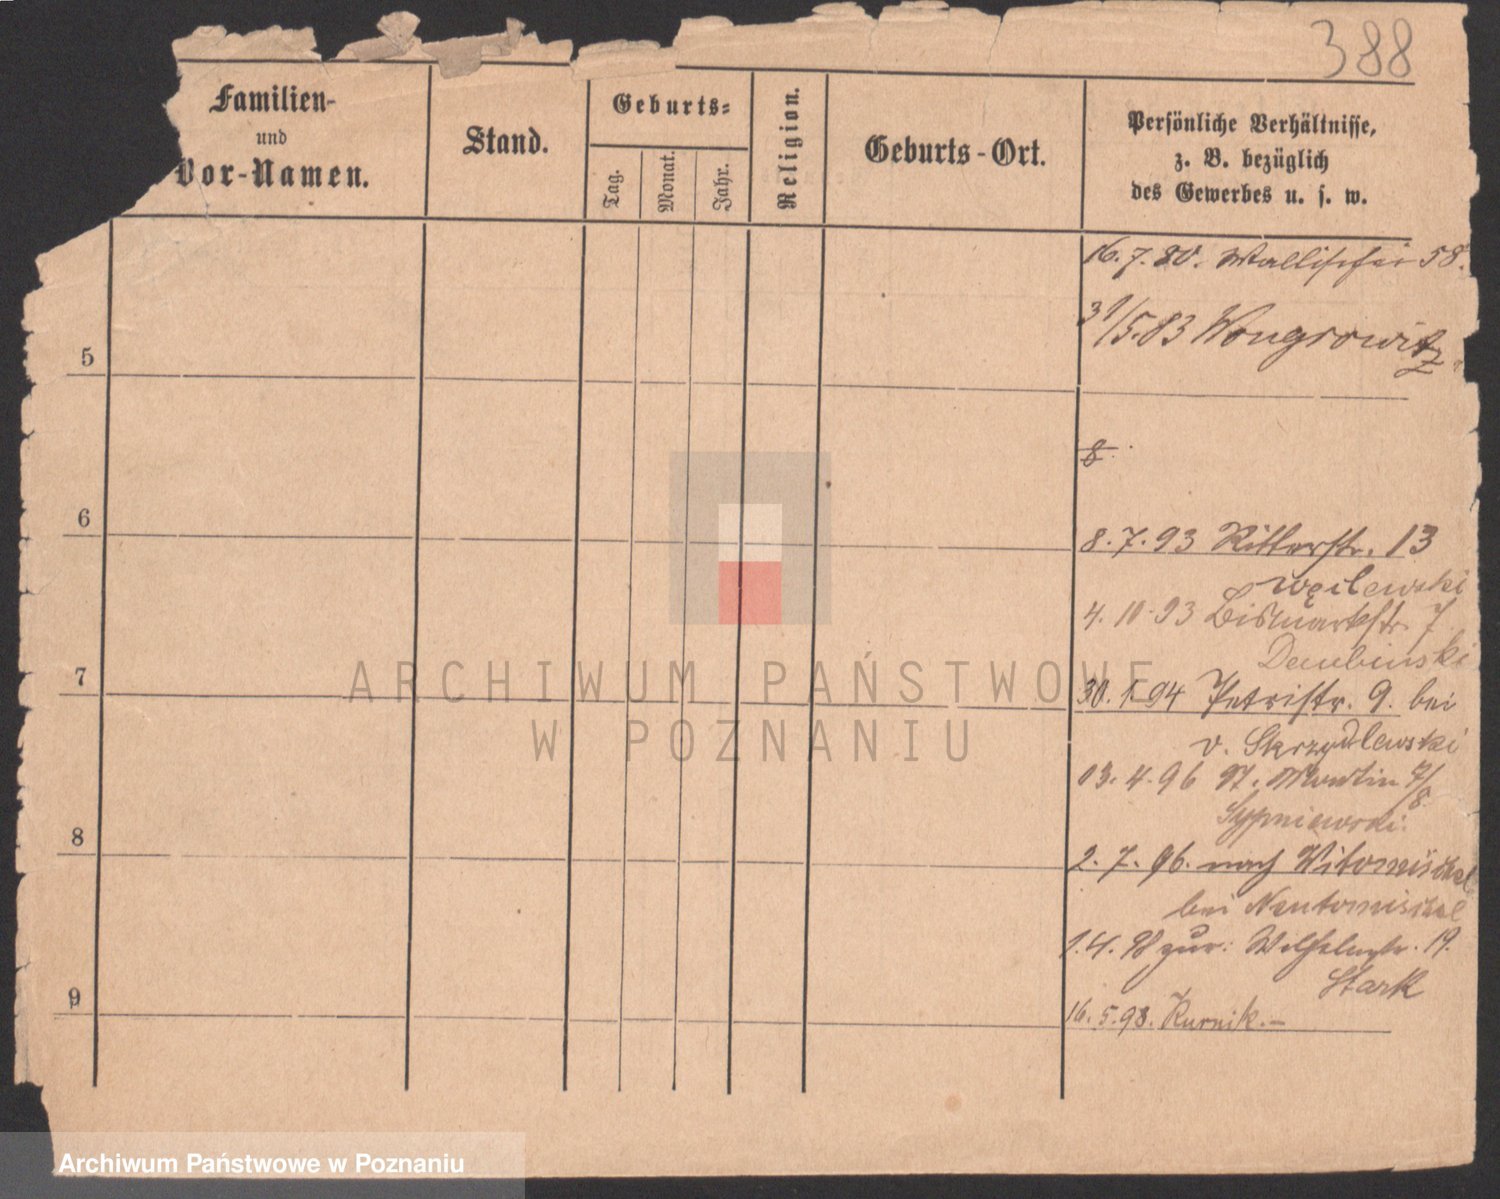 388
Familien-
und
Vor-Namen.
Stand.
Geburts-
Tag.
Monat.
Jahr.
Religion.
Geburts-Ort.
Persönliche Verhältnisse,
z. B. bezüglich
des Gewerbes u. s. w.
16. 7. 80. Wallischei 58.
31/5.83 Wongrowitz
5
8.
6
8. 7. 93 Ritterstr. 13
4. 10. 93 Bismarkstr. 7
Dembinski
7
30. 1. 94 Petristr. 9. bei
v. Skrzydlewski
13. 4. 96 St. Martin 7/8
Sypniewski.
8
2. 7. 96. nach Witomischel
bei Neutomischel
1. 4. 98 zur: Wilhelmstr. 19.
Stark
9
16. 5. 98. Kurnik.-
ARCHIWUM PAŃSTWOWE
W POZNANIU
Archiwum Państwowe w Poznaniu